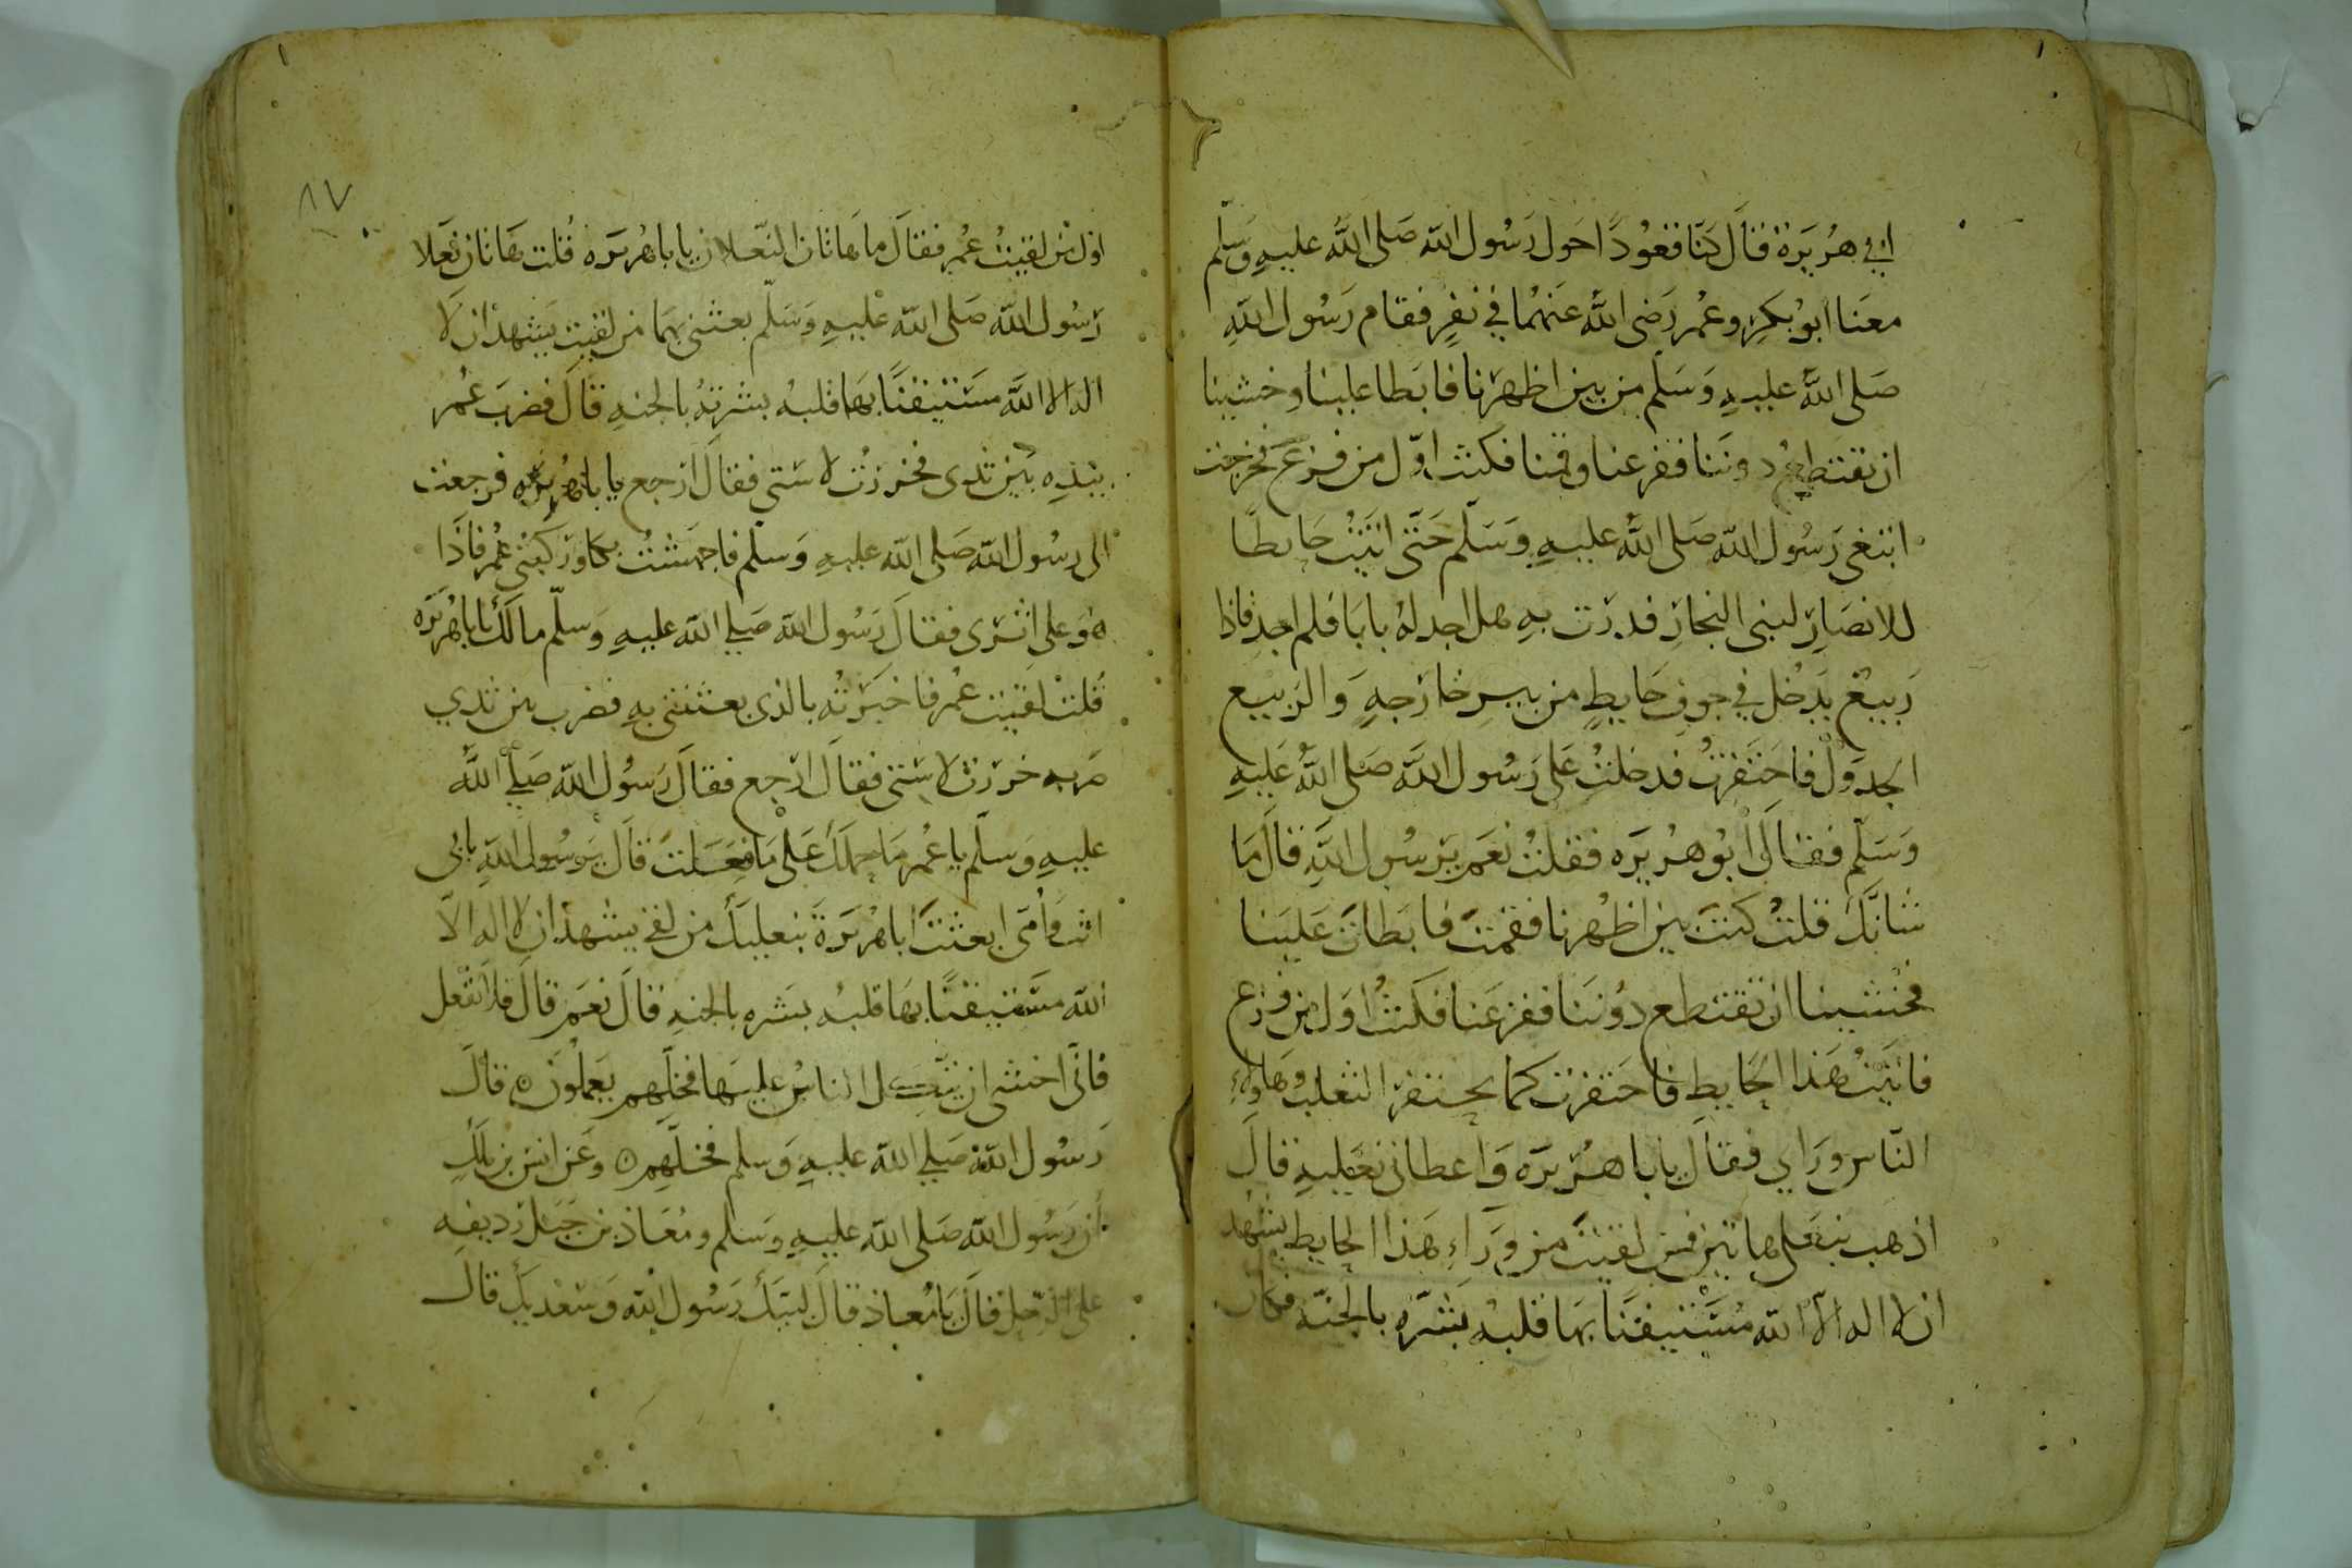 ابي هُرَيرَة قالَ كنّا قعُودًا حَول رَسُول الله صَلى اللهُ عليهِ وَسَلّم
معَنا ابُو بكرٍ وعُمر رَضى اللهُ عَنهُما في نفرٍ فقام رَسُول اللهِ
صَلى اللهُ عليهِ وَسَلّم من بين اظهرنا فابَطا علينا وخشينا
ان تقتطع دوننَا ففزعنا وقمنا فكنت اوّل من فزع فخرجت
ابتغى رَسُول الله صَلى اللهُ عليهِ وَسَلّم حَتّى اتَيْتُ حَايطًا
للانصَارِ لبنى النجارِ فدرت بهِ هل اجد لهُ بابًا فلم اجد فاذا
رَبيعٌ يَدخُل في جوفِ حَايطٍ من بيرٍ خارجهٍ وَالربيع
الجدوَلُ فاحتَفزتُ فدخلتُ عَلى رَسُول اللهِ صَلى اللهُ عَليهِ
وَسَلّم فقالَ ابُو هُريرَه فقلتُ نعَم يَرسُول اللهِ قالَ مَا
شانكَ قلتُ كنتَ بين اظهُرنا فقمتَ فابَطاتَ عَليَنا
فخشينا ان تقتطع دوُننَا ففزعَنا فكنتُ اوَل من فزع
فاتيتُ هَذا الحَايطِ فاحتَفزت كما يحتفز الثعلب وهَاولاءِ
النّاس ورَاي فقالَ يابا هُرَيرَه وَاعطانى نعَليهِ قالَ
اذهب بنعلى هاتين فمن لقيتَ من ورَآءِ هَذا الحايط يشهد
ان لا اله الاّ الله مُسْتيقنًا بهَا قلبهُ بَشّرهِ بالجنّه فكان
اوّل من لقيتُ عُمر فقالَ ما هاتان النّعلان يابا هُريرَه قُلت هَاتان نعَلا
رَسُول اللهِ صَلى الله عليهِ وَسَلّم بعثنى بهمَا من لقيت يَشهد ان لا
اله الا اللهَ مسَتيقنًا بهَا قلبهُ بشرتهُ بالجنهِ قالَ فضربَ عُمر
بيَدِه بَين ثديى فخررتُ لاستى فقالَ ارجع يابا هُريرَه فرجعت
الى رسُول الله صَلى الله عليهِ وَسلّم فاجهَشتُ بكا وركبنى عُمر فاذَا
هُوَ على اثرى فقالَ رَسُول الله صَلى الله عليهِ وَسلّم مالكَ يابا هُريرَه
قُلتُ لقيت عُمر فاخبَرتُه بالذى بعثتنى بهِ فضرب بين ثديي
ضربه خررت لاستى فقالَ ارجع فقالَ رَسُول الله صَلى اللهُ
عليهِ وَسلّم يا عُمر مَا حملكَ عَلى مَا فعَلتَ قالَ يَرسُول اللهِ بابى
انتَ وَأمّى ابعثتَ ابا هُريَرةَ بنعليكَ من لقى يشهد ان لا اله الاّ
الله مسَتيقنًا بهَا قلبهُ بَشره بالجنهِ قالَ نعَم قالَ فلا تفعَل
فانّى اخشى ان يتّكل الناسُ عليهَا فخلّهم يَعملوُنَ ۞ قالَ
رَسُول اللهِ صَلى الله عليهِ وَسلم فخلّهِم ۞ وعَن انس بن مَالك
أن رَسُول الله صَلى الله عليهِ وَسَلم ومُعَاذ بن جَبَل رديفه
على الرَحل قالَ يَا مُعاذ قالَ لبيَكَ رَسُول اللهِ وَسَعْديكَ قالَ
٨٧